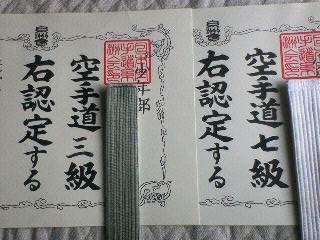 空手道七級
右認定する
空手道三級
右認定する